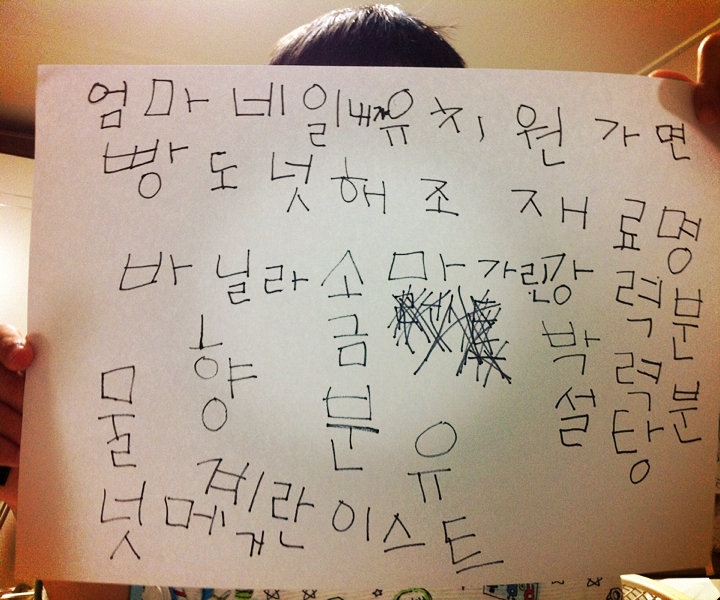 엄마 네일 내 유치원 가면
빵 도넛 해조 재료명
바닐라 소금 마가린 강력분
박력분
물 양 분유 설탕
넛메 란 이스트